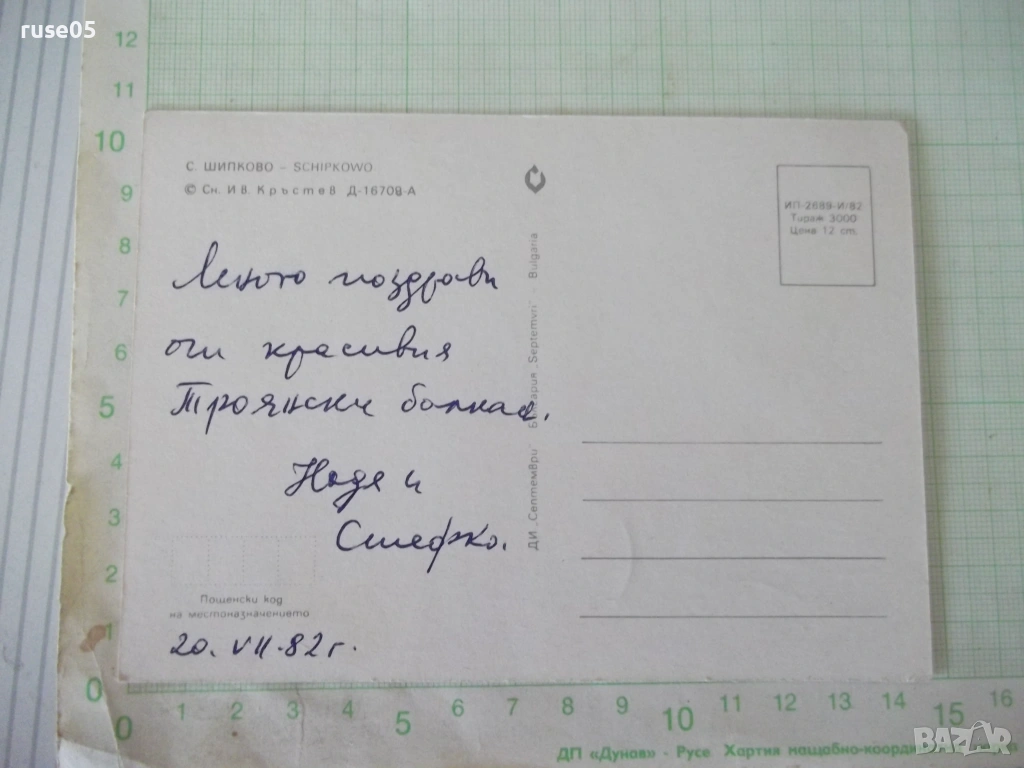 ruse05
12
11
10
9
8
7
6
5
4
3
2
1
0
С. ШИПКОВО – SCHIPKOWO
© Сн. Ив. Кръстев Д-16708-А
ИП-2689-И/82
Тираж 3000
Цена 12 ст.
поздрави
от красивия
Троянски балкан.
Надя и
Стефко.
ДИ „Септември" България „Septemvri" – Bulgaria
Пощенски код
на местоназначението
20. VII. 82 г.
0 1 2 3 4 5 6 7 8 9 10 11 12 13 14 15 16
ДП «Дунав» - Русе Хартия мащабно-коорди
BAZAR